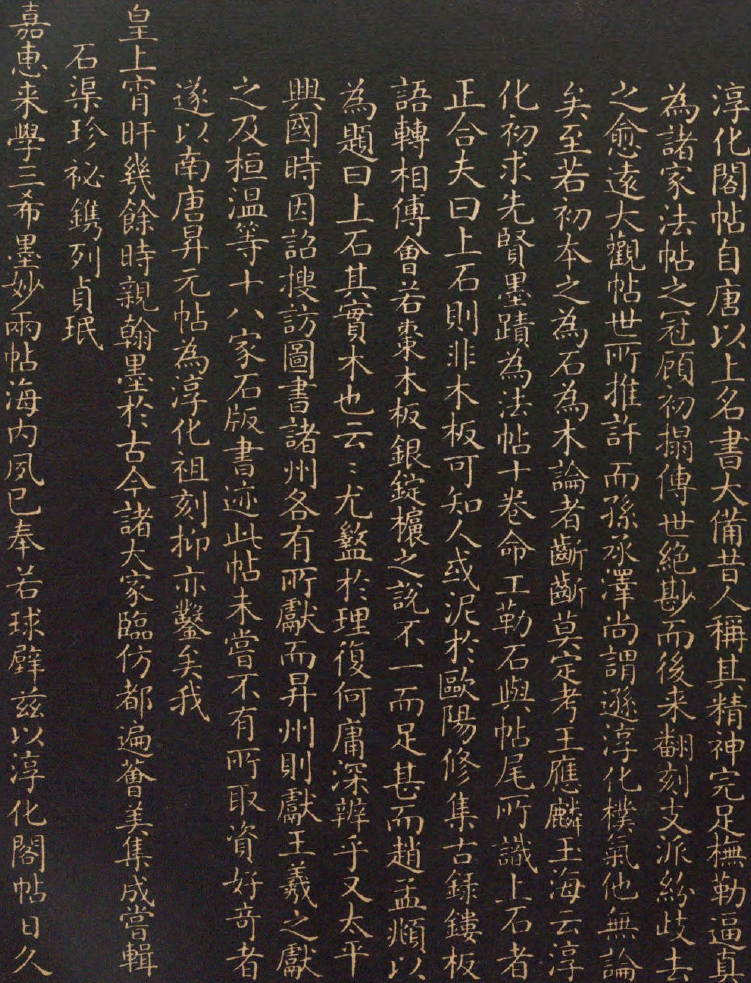 淳化閣帖自唐以上名書大備昔人稱其精神完足橅勒逼真
為諸家法帖之冠顧初搨傳世絕尠而後来翻刻支派紛歧去
之愈遠大觀帖世所推許而孫承澤尚謂遜淳化樸氣他無論
矣至若初本之為石為木論者齗齗莫定考王應麟玉海云淳
化初求先賢墨蹟為法帖十卷命工勒石與帖尾所識上石者
正合夫曰上石則非木板可知人或泥於歐陽修集古録鏤板
語轉相傅會若棗木板銀錠欀之說不一而足甚而趙孟頫以
為題曰上石其實木也云〻尤盭於理復何庸深辨乎又太平
興國時因詔搜訪圖書諸州各有所獻而昇州則獻王羲之獻
之及桓溫等十八家石版書迹此帖未嘗不有所取資好奇者
遂以南唐昇元帖為淳化祖刻抑亦鑿矣我
皇上宵旰幾餘時親翰墨於古今諸大家臨仿都遍薈美集成嘗輯
石渠珍祕鐫列貞珉
嘉惠来學三希墨妙兩帖海内夙已奉若球璧茲以淳化閣帖日久